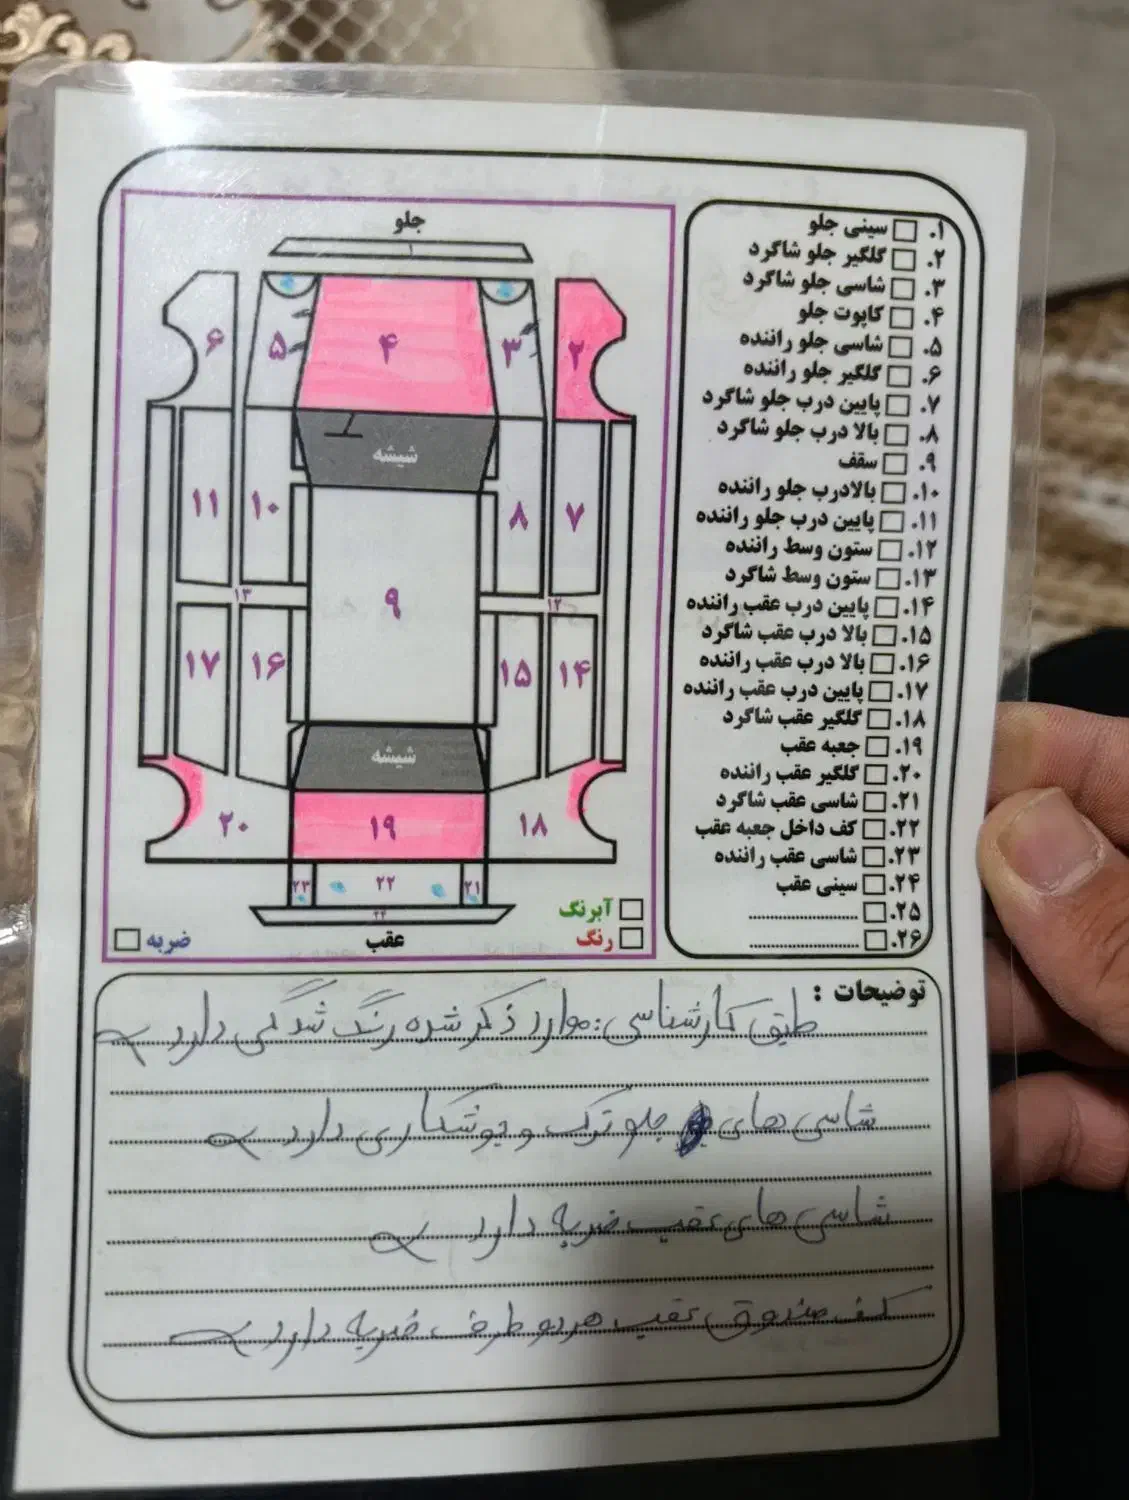 جلو
۱
۶
۵
۴
۳
۲
شیشه
۱۱
۱۰
۸
۷
۹
۱۳
۱۲
۱۷
۱۶
۱۵
۱۴
شیشه
۲۰
۱۹
۱۸
۲۳
۲۲
۲۱
۲۴
عقب
آبرنگ
رنگ
ضربه
۱. سینی جلو
۲. گلگیر جلو شاگرد
۳. شاسی جلو شاگرد
۴. کاپوت جلو
۵. شاسی جلو راننده
۶. گلگیر جلو راننده
۷. پایین درب جلو شاگرد
۸. بالا درب جلو شاگرد
۹. سقف
۱۰. بالادرب جلو راننده
۱۱. پایین درب جلو راننده
۱۲. ستون وسط راننده
۱۳. ستون وسط شاگرد
۱۴. پایین درب عقب راننده
۱۵. بالا درب عقب شاگرد
۱۶. بالا درب عقب راننده
۱۷. پایین درب عقب راننده
۱۸. گلگیر عقب شاگرد
۱۹. جعبه عقب
۲۰. گلگیر عقب راننده
۲۱. شاسی عقب شاگرد
۲۲. کف داخل جعبه عقب
۲۳. شاسی عقب راننده
۲۴. سینی عقب
۲۵. ....................
۲۶. ....................
توضیحات :
طبق کارشناسی: موارد ذکر شده رنگ شدگی دارد
شاسی های جلو ترک و جوشکاری دارد
شاسی های عقب ضربه دارد
کف صندوق عقب هر دو طرف ضربه دارد